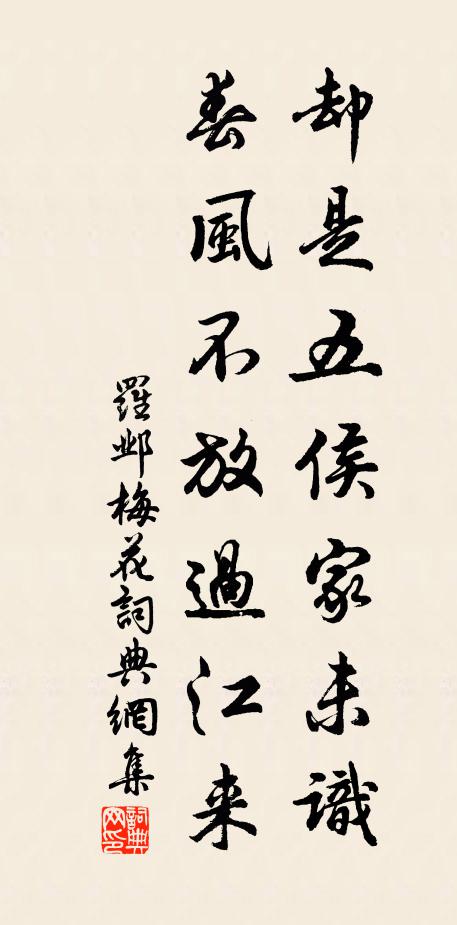 却是五侯家未識
春風不放過江来
羅邺梅花詞典網集
詞典网印